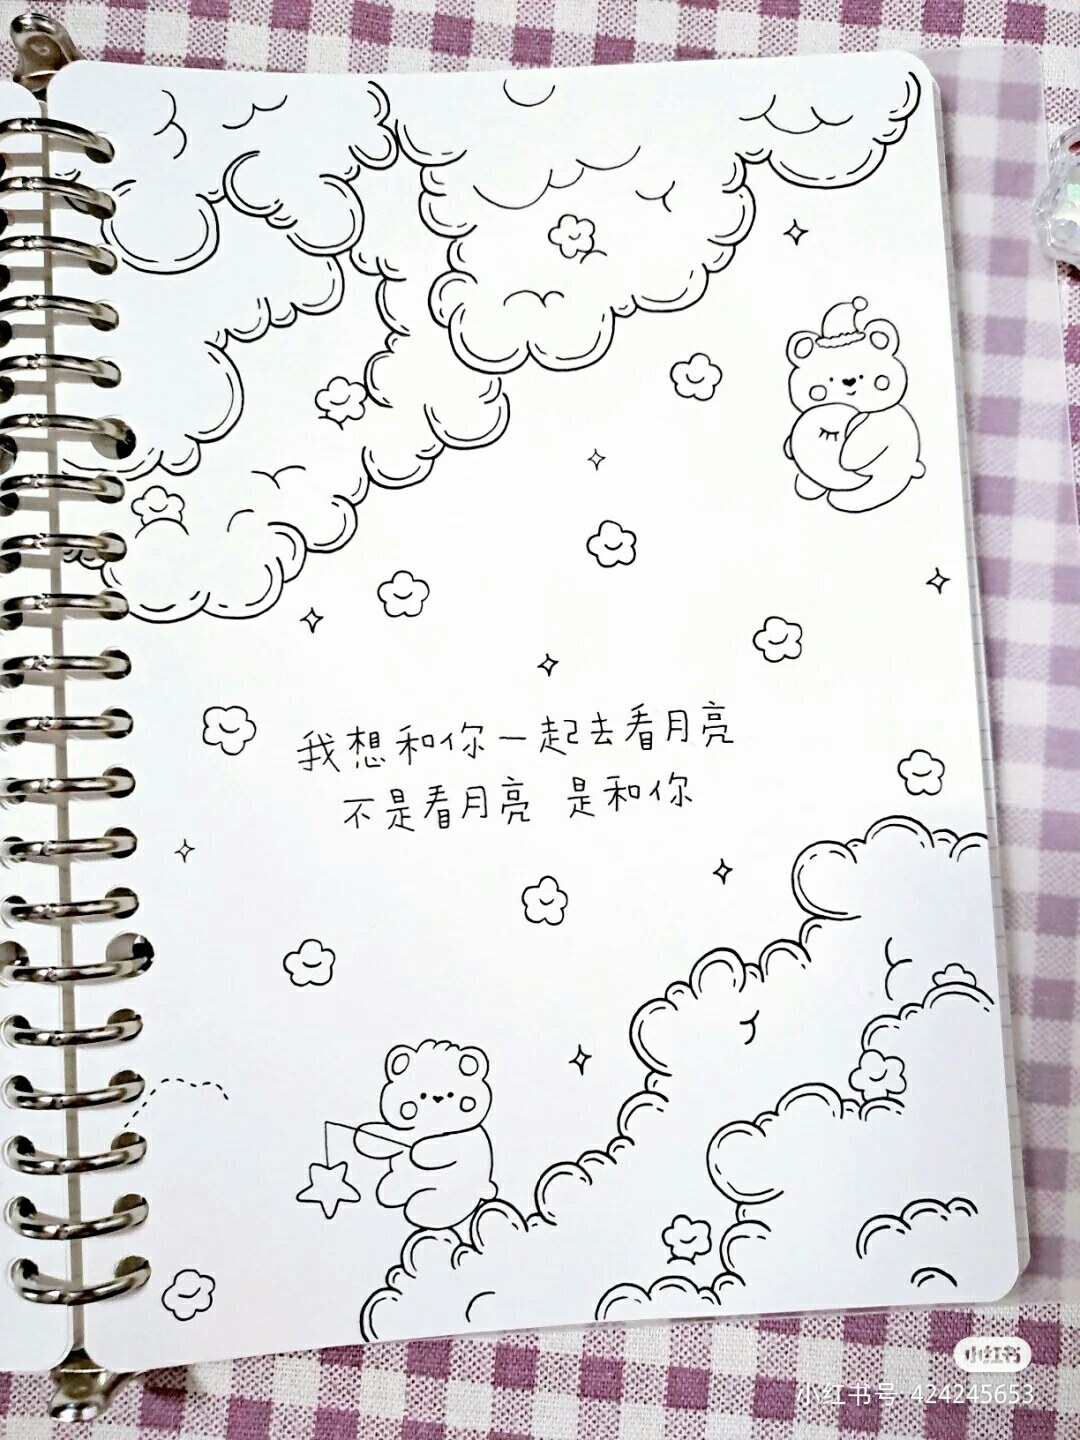 我想和你一起去看月亮
不是看月亮 是和你
小红书
小红书号 424245653